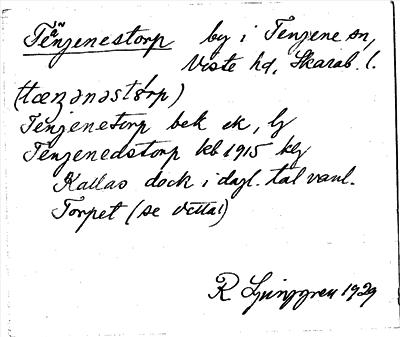 Tenjenestorp by i Tenjene sn,
Viste hd, Skarab. l.
Tenjenetorp bek ek, lj
Tenjenedstorp kb 1915 klj
Kallas dock i dagl. tal vanl.
Torpet (se vettai)
R Ljunggren 1929